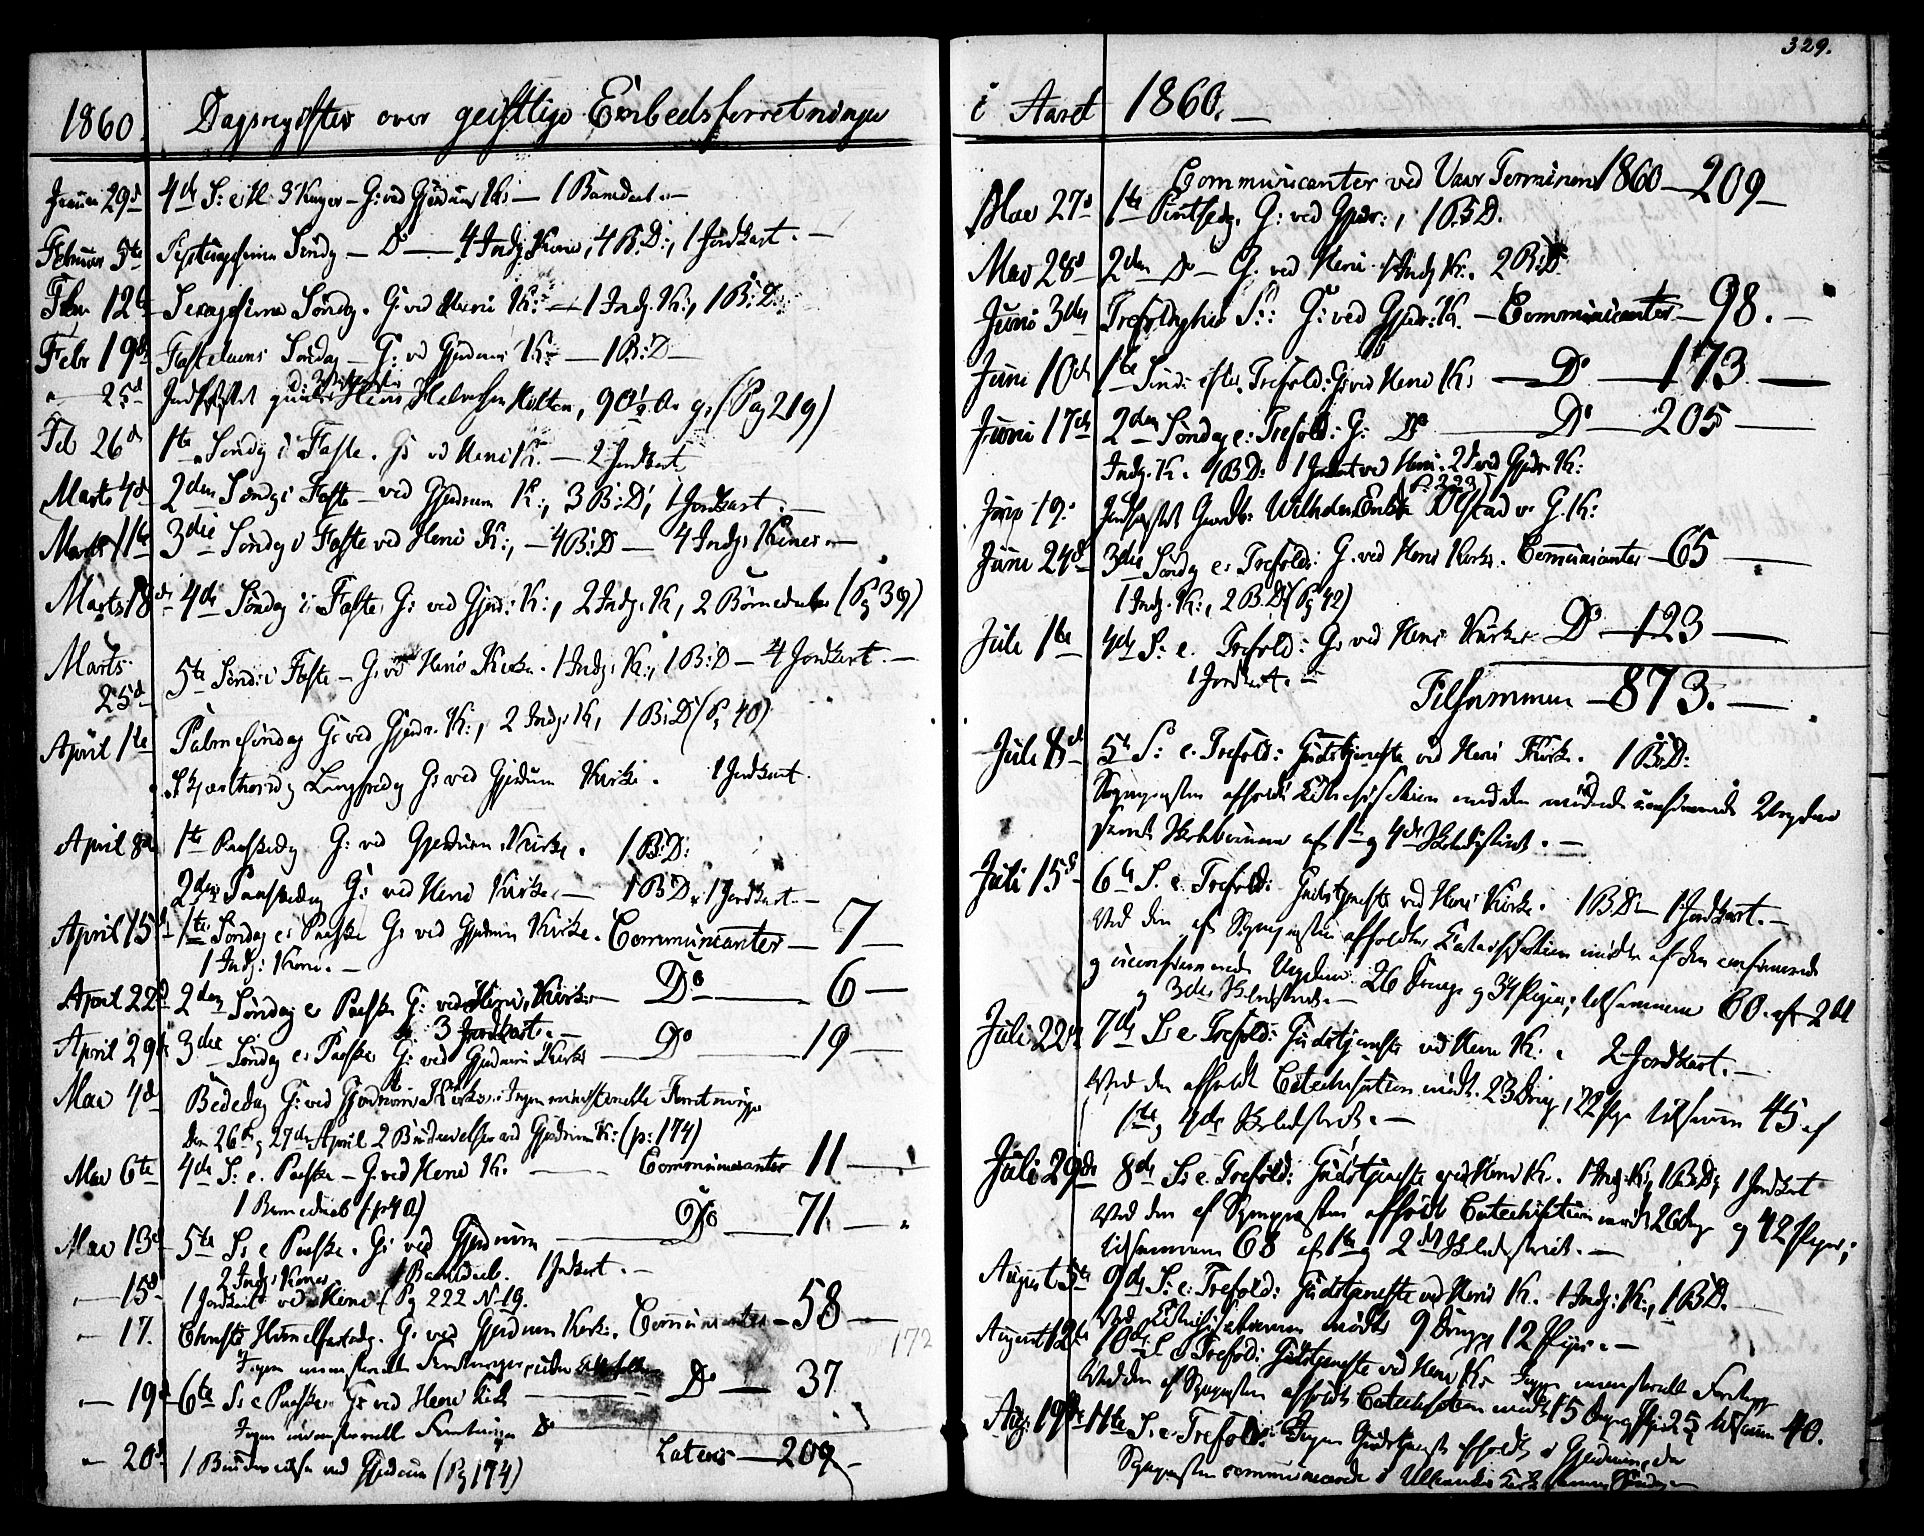 1860. Dagsregister over geistlige Embedsforretninger
Januar 29d 4de S: e: H. 3 Konger – G: ved Gjerdrum K: – 1 Barnedaab. –
Februar 5te Septuagesima Søndg – Do – 4 Indg: Kone, 4 B: D:, 1 Jordkast. –
Febr 12te Sexagesima Søndg. G: ved Heni K: – 1 Indg. K:, 1 B: D:
Febr 19de Fastelavns Søndag – G: vd Gjerdrum K: – 1 B: D –
" 25d Jordfæstet Halvorsen Holten, 90 Aar g: (Pag 219)
Feb 26d 1te Søndg i Faste. G: vd Heni K: – 2 Jordkast
Marts 4d 2den Søndg i Faste – ved Gjerdrum K:, 3 B: D, 1 Jordkast. –
Marts 11te 3die Søndg i Faste ved Heni K:, – 4 B: D – 4 Indg: Koner –
Marts 18de 4de Søndag i Faste, G: ved Gjerd: K:, 2 Indg. K, 2 Børnedaab (Pg 39)
Marts 25d 5te Sønd: i Faste – G. vd Heni Kirke. 1 Indg. K:, 1 B: D – 4 Jordkast. –
April 1te Palmesøndag G: ved Gjerdr. K:, 2 Indg. K, 1 B: D (Pg 40)
Skjærthorsdg Langfredg G: ved Gjerdrum Kirke. 1 Jordkast.
April 8de 1te Paaskedg G: ved Gjerdrum Kirke. 1 B: D:
2den Paaskedag G: ved Heni Kirke – 1 B: D, 1 Jordkast. –
April 15d 1te Søndag e: Paaske G: ved Gjerdrum Kirke. Communicanter – 7 –
1 Indg: Kone. –
April 22d 2den Søndag e: Paaske G: ved Heni Kirke – Do – 6 –
3 Jordkast. –
April 29d 3die Søndag e: Paaske G: ved Gjerdrum Kirke – Do – 19 –
Mai 4d Bededag G: ved Gjerdrum Kirke. Ingen ministerielle Forretninger
Den 26de g 27de April 2 Brudevielser ved Gjerdrum K: (p: 174)
Mai 6te 4de S: e. Paaske – G. ved Heni K. – Communicanter 11 –
1 Barnedaab (p 40)
Mai 13d 5te S: e Paaske. G: ved Gjerdrum – Do – 71. –
2 Indg: Koner 1 Barnedaab. 1 Jordkast. –
– 15d 1 Jordkast ved Heni (Pg 222 N 19.
– 17. Christi Himmelfartsdg. G. ved Gjerdrum Kirke. Communicanter – 58 –
172
Ingen ministerielle Forretninger
– 19d 6te S: e Paaske G: ved Heni Kirke – Do – 37
Ingen ministerielle Forretninger
– 20d 1 Brudevielse ved Gjerdrum (Pg 174) Lateris – 209 –
329.
i Aaret 1860. –
Communicanter ved Vaar Terminen 1860 – 209 –
Mai 27d 1te Pintsedg. G: ved Gjerdr:, 1 B: D.
Mai 28d 2den Do – G. ved Heni. 1 Indg K:. 2 B: D.
Juni 3die Trefoldigheds S:: G: ved Gjerdr: K. – Communicanter – 98. –
Juni 10de 1te Sønd: efter Trefold: G: ved Heni K: – Do – 173 –
Juni 17de 2den Søndag e: Trefold: G: Do – Do – 205 –
Indg. K. 1 B D: 1 Jordkast ved Heni. 2 d ved Gjerdr. K:
(P. 223)
Juni 19. Jordfæstet Gaardbr: Wilhelm Ølstad v. G. K:
Juni 24d 3die Søndg e: Trefold: G. ved Heni Kirke. Communicanter – 65 –
1 Indg. K:, 2 B. D: (Pg 42)
Juli 1te 4de S: e. Trefold: G: ved Heni Kirke Do – 123 –
1 Jordkast. – Tilsammen – 873. –
Juli 8d 5te S: e. Trefold: Gudstjeneste ved Heni Kirke. 1 B: D:
Sognepresten afholdt Catechisation med den mødende confirmerede Ungdom
samt Skolebørnene af 1te g 4de Skoledistrict. –
Juli 15d 6te S. e. Trefold: Gudstjeneste ved Heni Kirke. 1 B. D: – 1 Jordkast. –
Ved den af Sognepresten afholdte Catechisation mødte af den confirmerede
g uconfirmerede Ungdom 26 Drenge g 34 Piger; tilsammen 60. af 2det
g 3die Skoledistrict. –
Juli 22de 7de S: e Trefold: Gudstjeneste ved Heni K:. 2 Jordkast. –
Ved den afholdte Catechisation mødte 23 Dreng, 22 Pige tilsammen 45 af
1te g 4de Skoledistrict. –
Juli 29de 8de S: e Trefold: Gudstjeneste ved Heni K. 1 Indg. K:, 1 B. D:, 1 Jordkast
Ved den af Sognepresten afholdte Catechisation mødte 26 Dreng g 42 Piger;
tilsammen 68 af 1te g 2det Skoledistrict. –
August 5te 9de S: e. Trefold: Gudstjeneste ved Heni K. 1 Indg: K:, 1 B D. –
Ved Catechisationen mødte 9 Dreng g 12 Piger. –
August 12te 10de S e Trefold: Gudstjeneste ved Heni K: Ingen ministerielle Forretngr
Ved den af Sognepresten afholdte Catechisation mødte 15 Drenge g Piger 25 tilsammen 40.
Aug: 19de 11te S. e Trefold: Ingen Gudstjeneste afholdt i Gjerdrum, da
Sognepresten communicerede i Ullensakers Kirke denne Søndag –